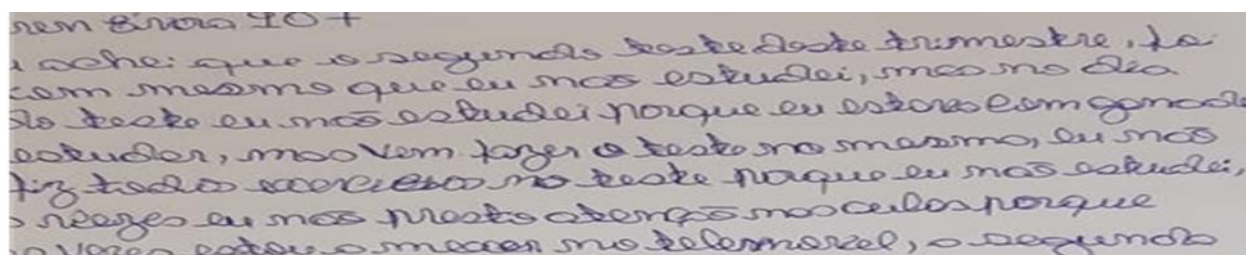 10+
achei que o segundo teste deste trimestre, foi
bem mesmo que eu nao estudei, mas no dia
do teste eu não estudei porque eu estava com
estudar, mas vem fazer o teste no mesmo, eu nao
fiz todos exercicios no teste porque eu não estudei,
vezes eu nao presto atenção nas aulas porque
vezes estou o mexer no telemovel, o segundo